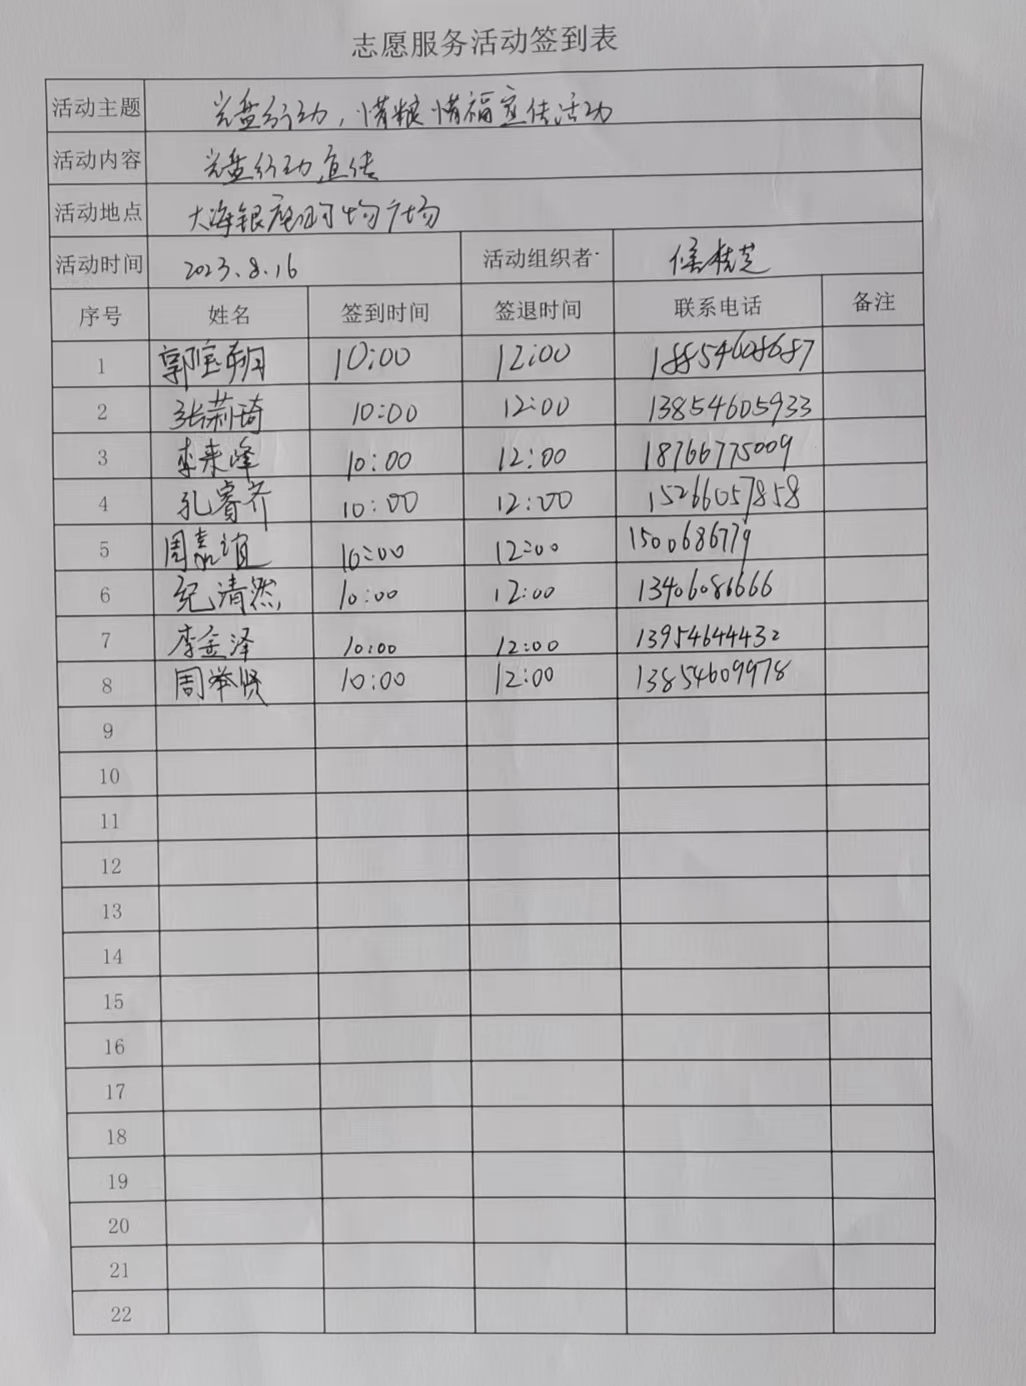 志愿服务活动签到表
活动主题 光盘行动，惜粮惜福宣传活动
活动内容 光盘行动宣传
活动地点 大海银座购物广场
活动时间 2023.8.16 活动组织者 侯桂芝
序号 姓名 签到时间 签退时间 联系电话 备注
1 郭宝翔 10:00 12:00 18854608687
2 张莉琦 10:00 12:00 13854605933
3 李来峰 10:00 12:00 18766775009
4 孔睿齐 10:00 12:00 15266057858
5 周嘉谊 10:00 12:00 1500686779
6 纪清然 10:00 12:00 13406086666
7 李金泽 10:00 12:00 13954644432
8 周举贤 10:00 12:00 13854609978
9
10
11
12
13
14
15
16
17
18
19
20
21
22